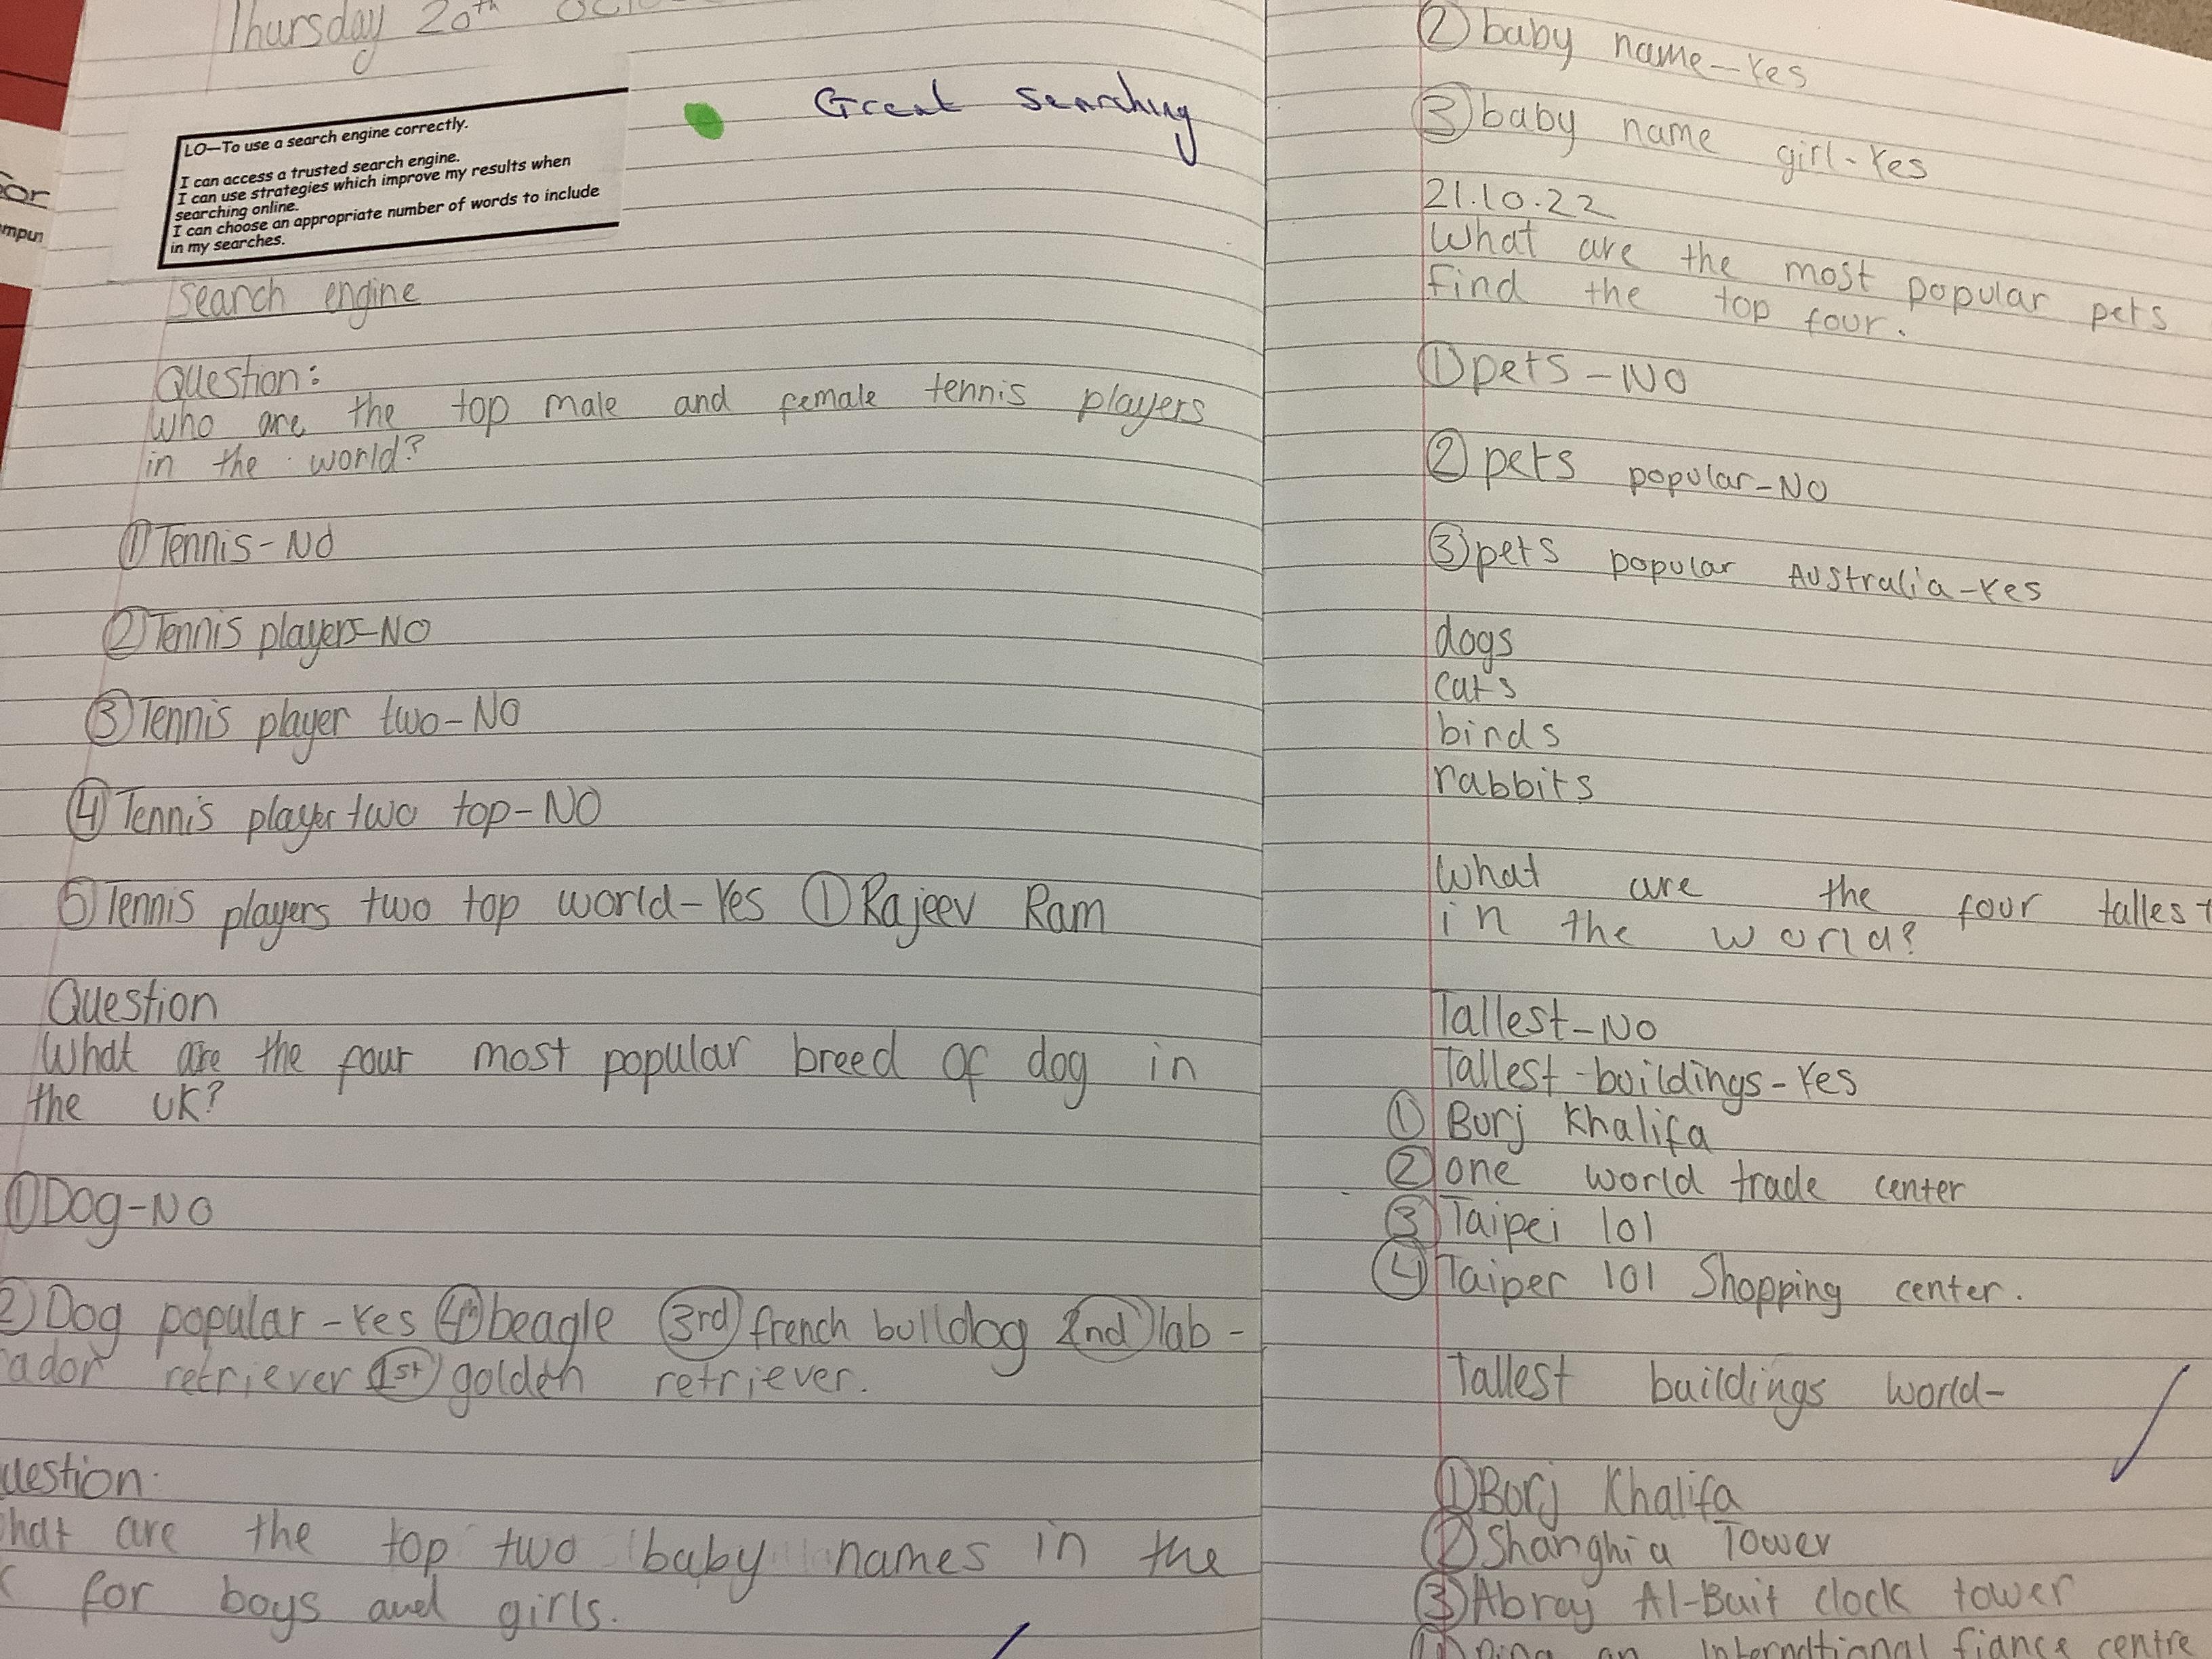 Thursday 20th
Great searching
LO—To use a search engine correctly.
I can access a trusted search engine.
I can use strategies which improve my results when
searching online.
I can choose an appropriate number of words to include
in my searches.
Search engine
Question:
who are the top male and female tennis players
in the world?
① Tennis-No
② Tennis players-NO
③ Tennis player two-NO
④ Tennis player two top-NO
⑤ Tennis players two top world-Yes ① Rajeev Ram
Question
What are the four most popular breed of dog in
the UK?
① Dog-NO
2) Dog popular-Yes 4th beagle 3rd french bulldog 2nd lab-
ador retriever 1st golden retriever.
uestion.
hat are the top two baby names in the
for boys and girls.
② baby name-Yes
③ baby name girl-Yes
21.10.22
What are the most popular pets
find the top four.
① pets-NO
② pets popular-NO
③ pets popular Australia-Yes
dogs
cats
birds
rabbits
What are the four tallest
in the world?
Tallest-No
Tallest-buildings-Yes
① Burj Khalifa
② one world trade center
③ Taipei 101
④ Taiper 101 Shopping center.
Tallest buildings world-
① Burj Khalifa
② Shanghia Tower
③ Abraj Al-Bait clock tower
Ping an International fiance centre